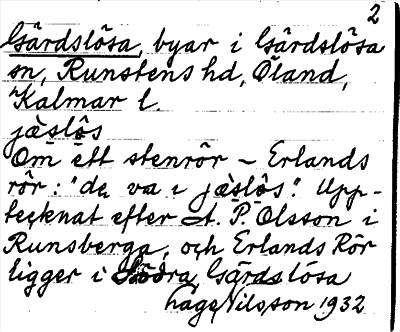 2
Gärdslösa, byar i Gärdslösa
sn, Runstens hd, Öland,
Kalmar l.
jæ̀slôs
Om ett stenrör – Erlands
rör: "de va i jæ̀slôs". Upp-
tecknat efter A. P. Olsson i
Runsberga, och Erlands Rör
ligger i Södra Gärdslösa
Åage Nilsson 1932